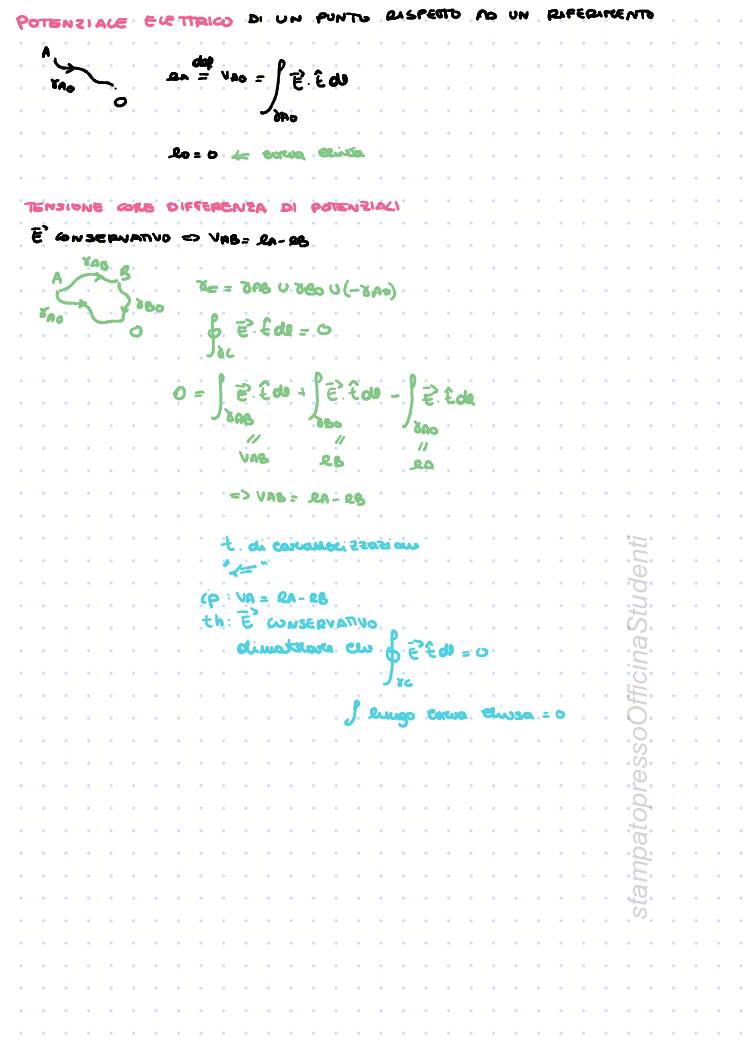 POTENZIALE ELETTRICO DI UN PUNTO RISPETTO AD UN RIFERIMENTO
A
γAO
O
eA def= VAO = ∫γAO E⃗ · t̂ dl
eO = 0 ← curva chiusa
TENSIONE COME DIFFERENZA DI POTENZIALI
E⃗ CONSERVATIVO ⇔ VAB = eA - eB
γAB
A B
γAO γBO
O
γC = γAB ∪ γBO ∪ (-γAO)
∮γC E⃗ · t̂ dl = 0
0 = ∫γAB E⃗ · t̂ dl + ∫γBO E⃗ · t̂ dl - ∫γAO E⃗ · t̂ dl
// // //
VAB eB eA
=> VAB = eA - eB
t. di caratterizzazione
"⇐"
ip: VA = eA - eB
th: E⃗ CONSERVATIVO
dimostrare che ∮γC E⃗ t̂ dl = 0
∫ lungo curva chiusa = 0
stampatopressoOfficinaStudenti